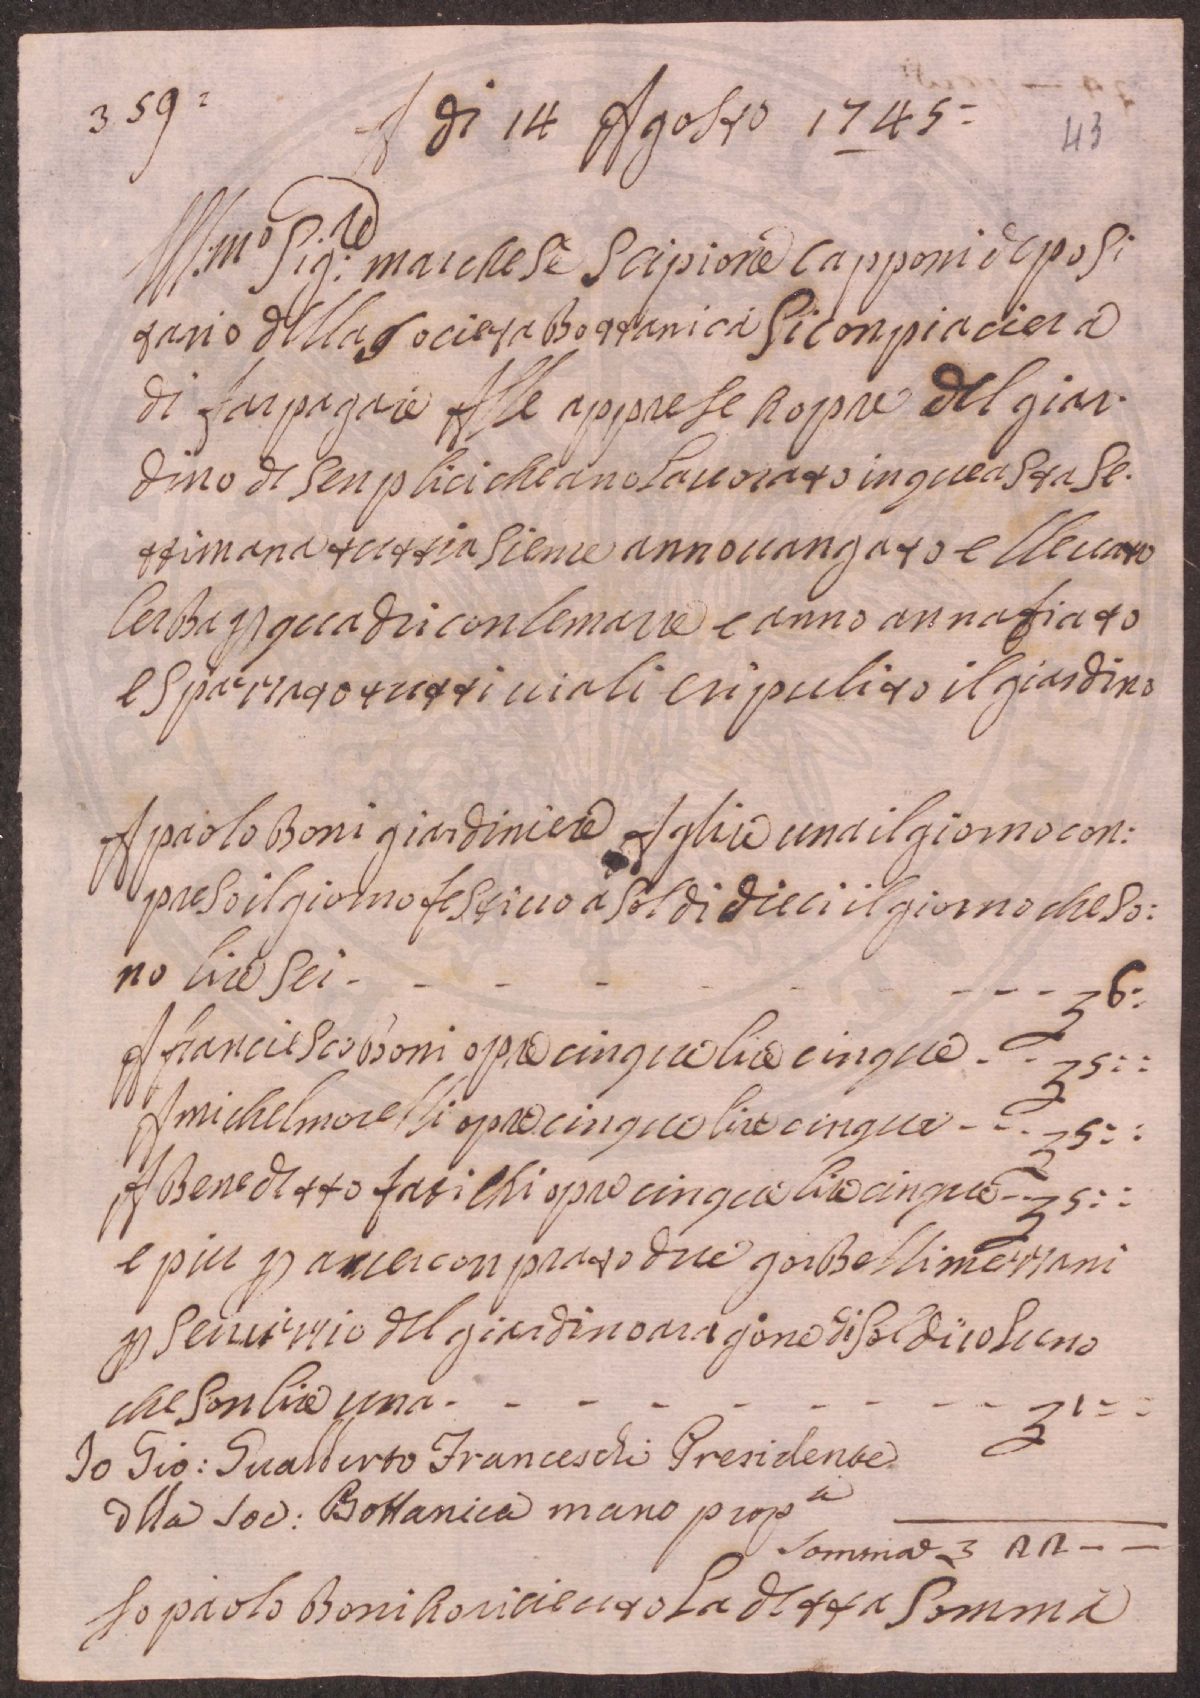 359=
A di 14 Agosto 1745=
43
Ill:mo Sig:re marchese Scipione Capponi deposi
tario della Societa Bottanica Si conpiaciera
di far pagare Alle apprese hopre del giar-
dino de Senplici che ano Lauorato in queasta Se-
ttimana tutti asieme anno uangato e lleuato
lerBa p quadri con le marre e anno annafiato
e Sparzato tutti i uiali e ripulito il giardino
A paolo Boni giardiniere A llire una il giorno con:
preso il giorno festiuo a Soldi dieci il giorno che So:
no lire Sei - - - - - - - - - - £ 6:
A franciesco Boni opre cinque lire cinque - - £ 5: :
A michel morelli opre cinque lire cinque - - - £ 5: :
A Benedetto fatichi opre cinque lire cinque - - £ 5: :
e piu p auer conprato due gorBelli mezzani
p Seruizzio del giardino aragone di Soldi 10 luno
che Son lire una - - - - - - - - - £ 1: :
Io Gio: Gualberto Franceschi Presidente
dlla Soc: Bottanica mano prop.a
Somma £ 22 - -
Io paolo Boni ho riceuuto La detta Somma